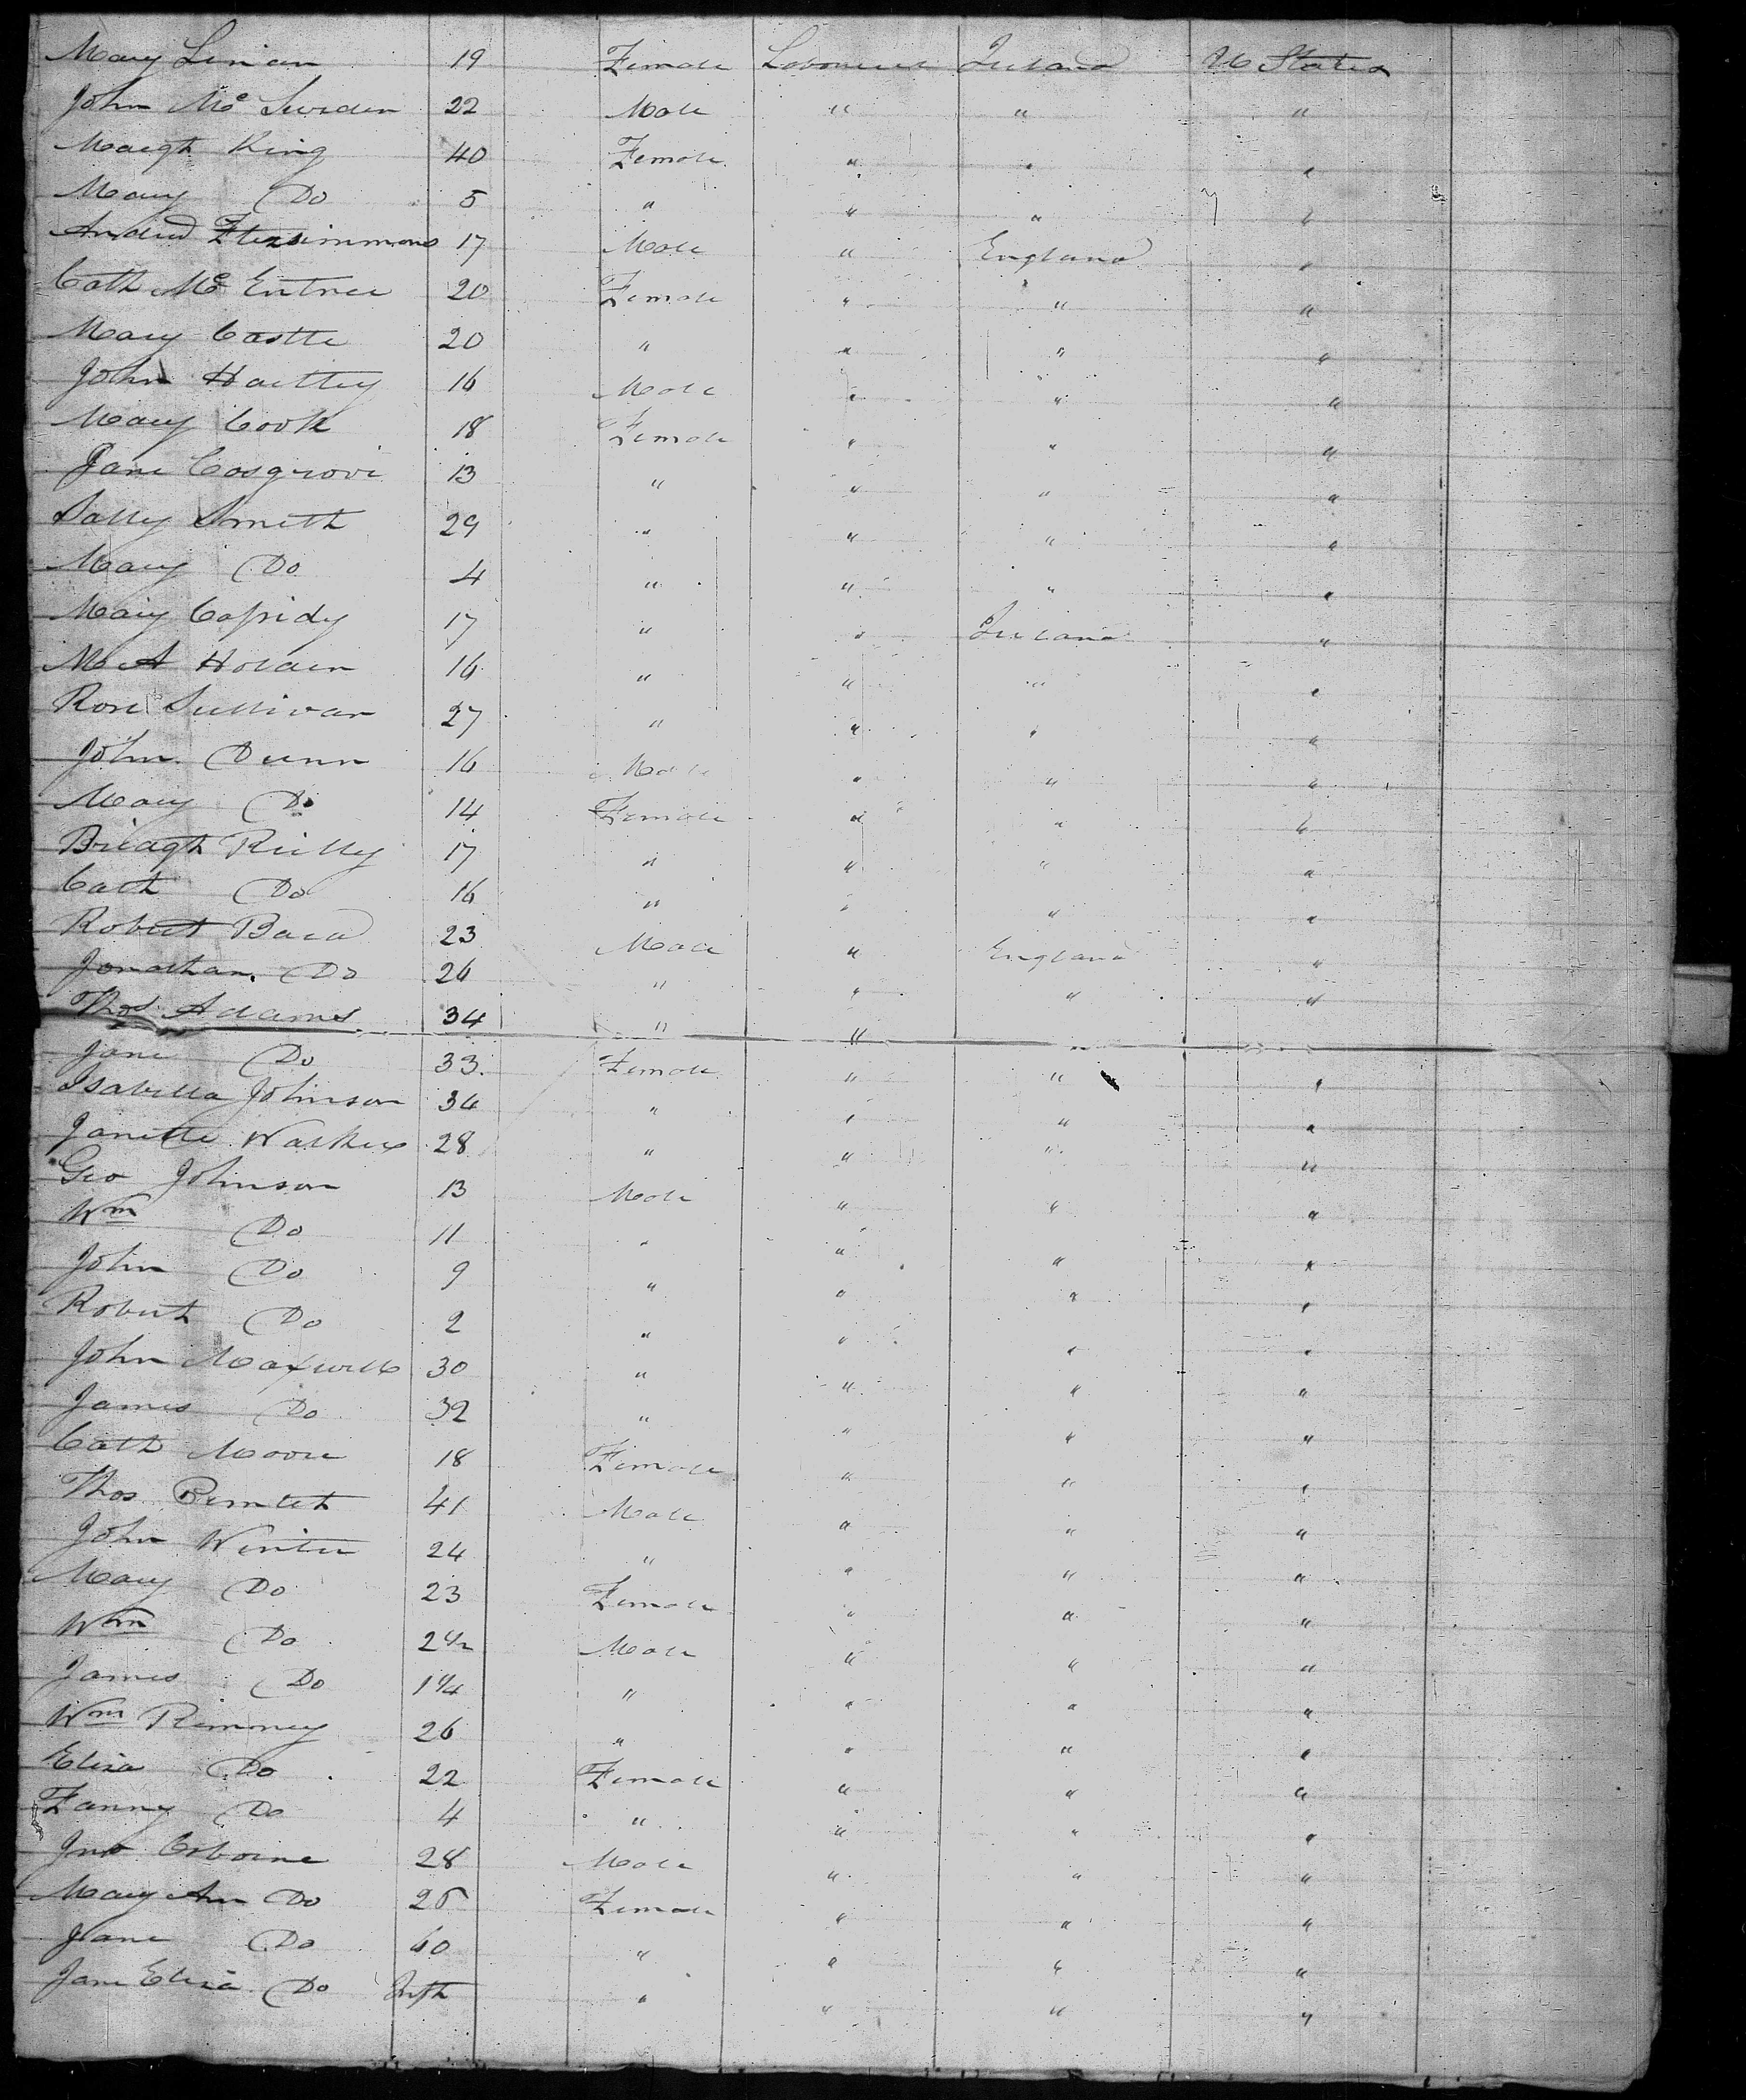 Mary Linian 19 Female Labourers Ireland U States
John Mc Sweden 22 Male " " "
Margt King 40 Female " " "
Mary Do 5 " " " "
Andrew Fitzsimmons 17 Male " England "
Cath Mc Entree 20 Female " " "
Mary Castle 20 " " " "
John Hartley 16 Male " " "
Mary Cook 18 Female " " "
Jane Cosgrove 13 " " " "
Sally Smith 29 " " " "
Mary Do 4 " " " "
Mary Cassidy 17 " " Ireland "
M A Holden 16 " " " "
Rose Sullivan 27 " " " "
John Dunn 16 Male " " "
Mary Do 14 Female " " "
Bridgt Reilly 17 " " " "
Cath Do 16 " " " "
Robert 23 Male " England "
Jonathan Do 26 " " " "
Thos Adams 34 " "
Jane Do 33 Female " " "
Isabella Johnson 34 " " " "
Janette Walker 28 " " " "
Geo Johnson 13 Male " " "
Wm Do 11 " " " "
John Do 9 " " " "
Robert Do 2 " " " "
John Maxwell 30 " " " "
James Do 32 " " " "
Cath Moore 18 Female " " "
Thos 41 Male " " "
John Winter 24 " " " "
Mary Do 23 Female " " "
Wm Do 2 1/2 Male " " "
James Do 1 1/4 " " " "
Wm Rimmey 26 " " " "
Eliza Do 22 Female " " "
Fanny Do 4 " " " "
Jno Osborne 28 Male " " "
Mary Ann Do 25 Female " " "
Jane Do 60 " " " "
Jane Eliza Do Inft " " " "